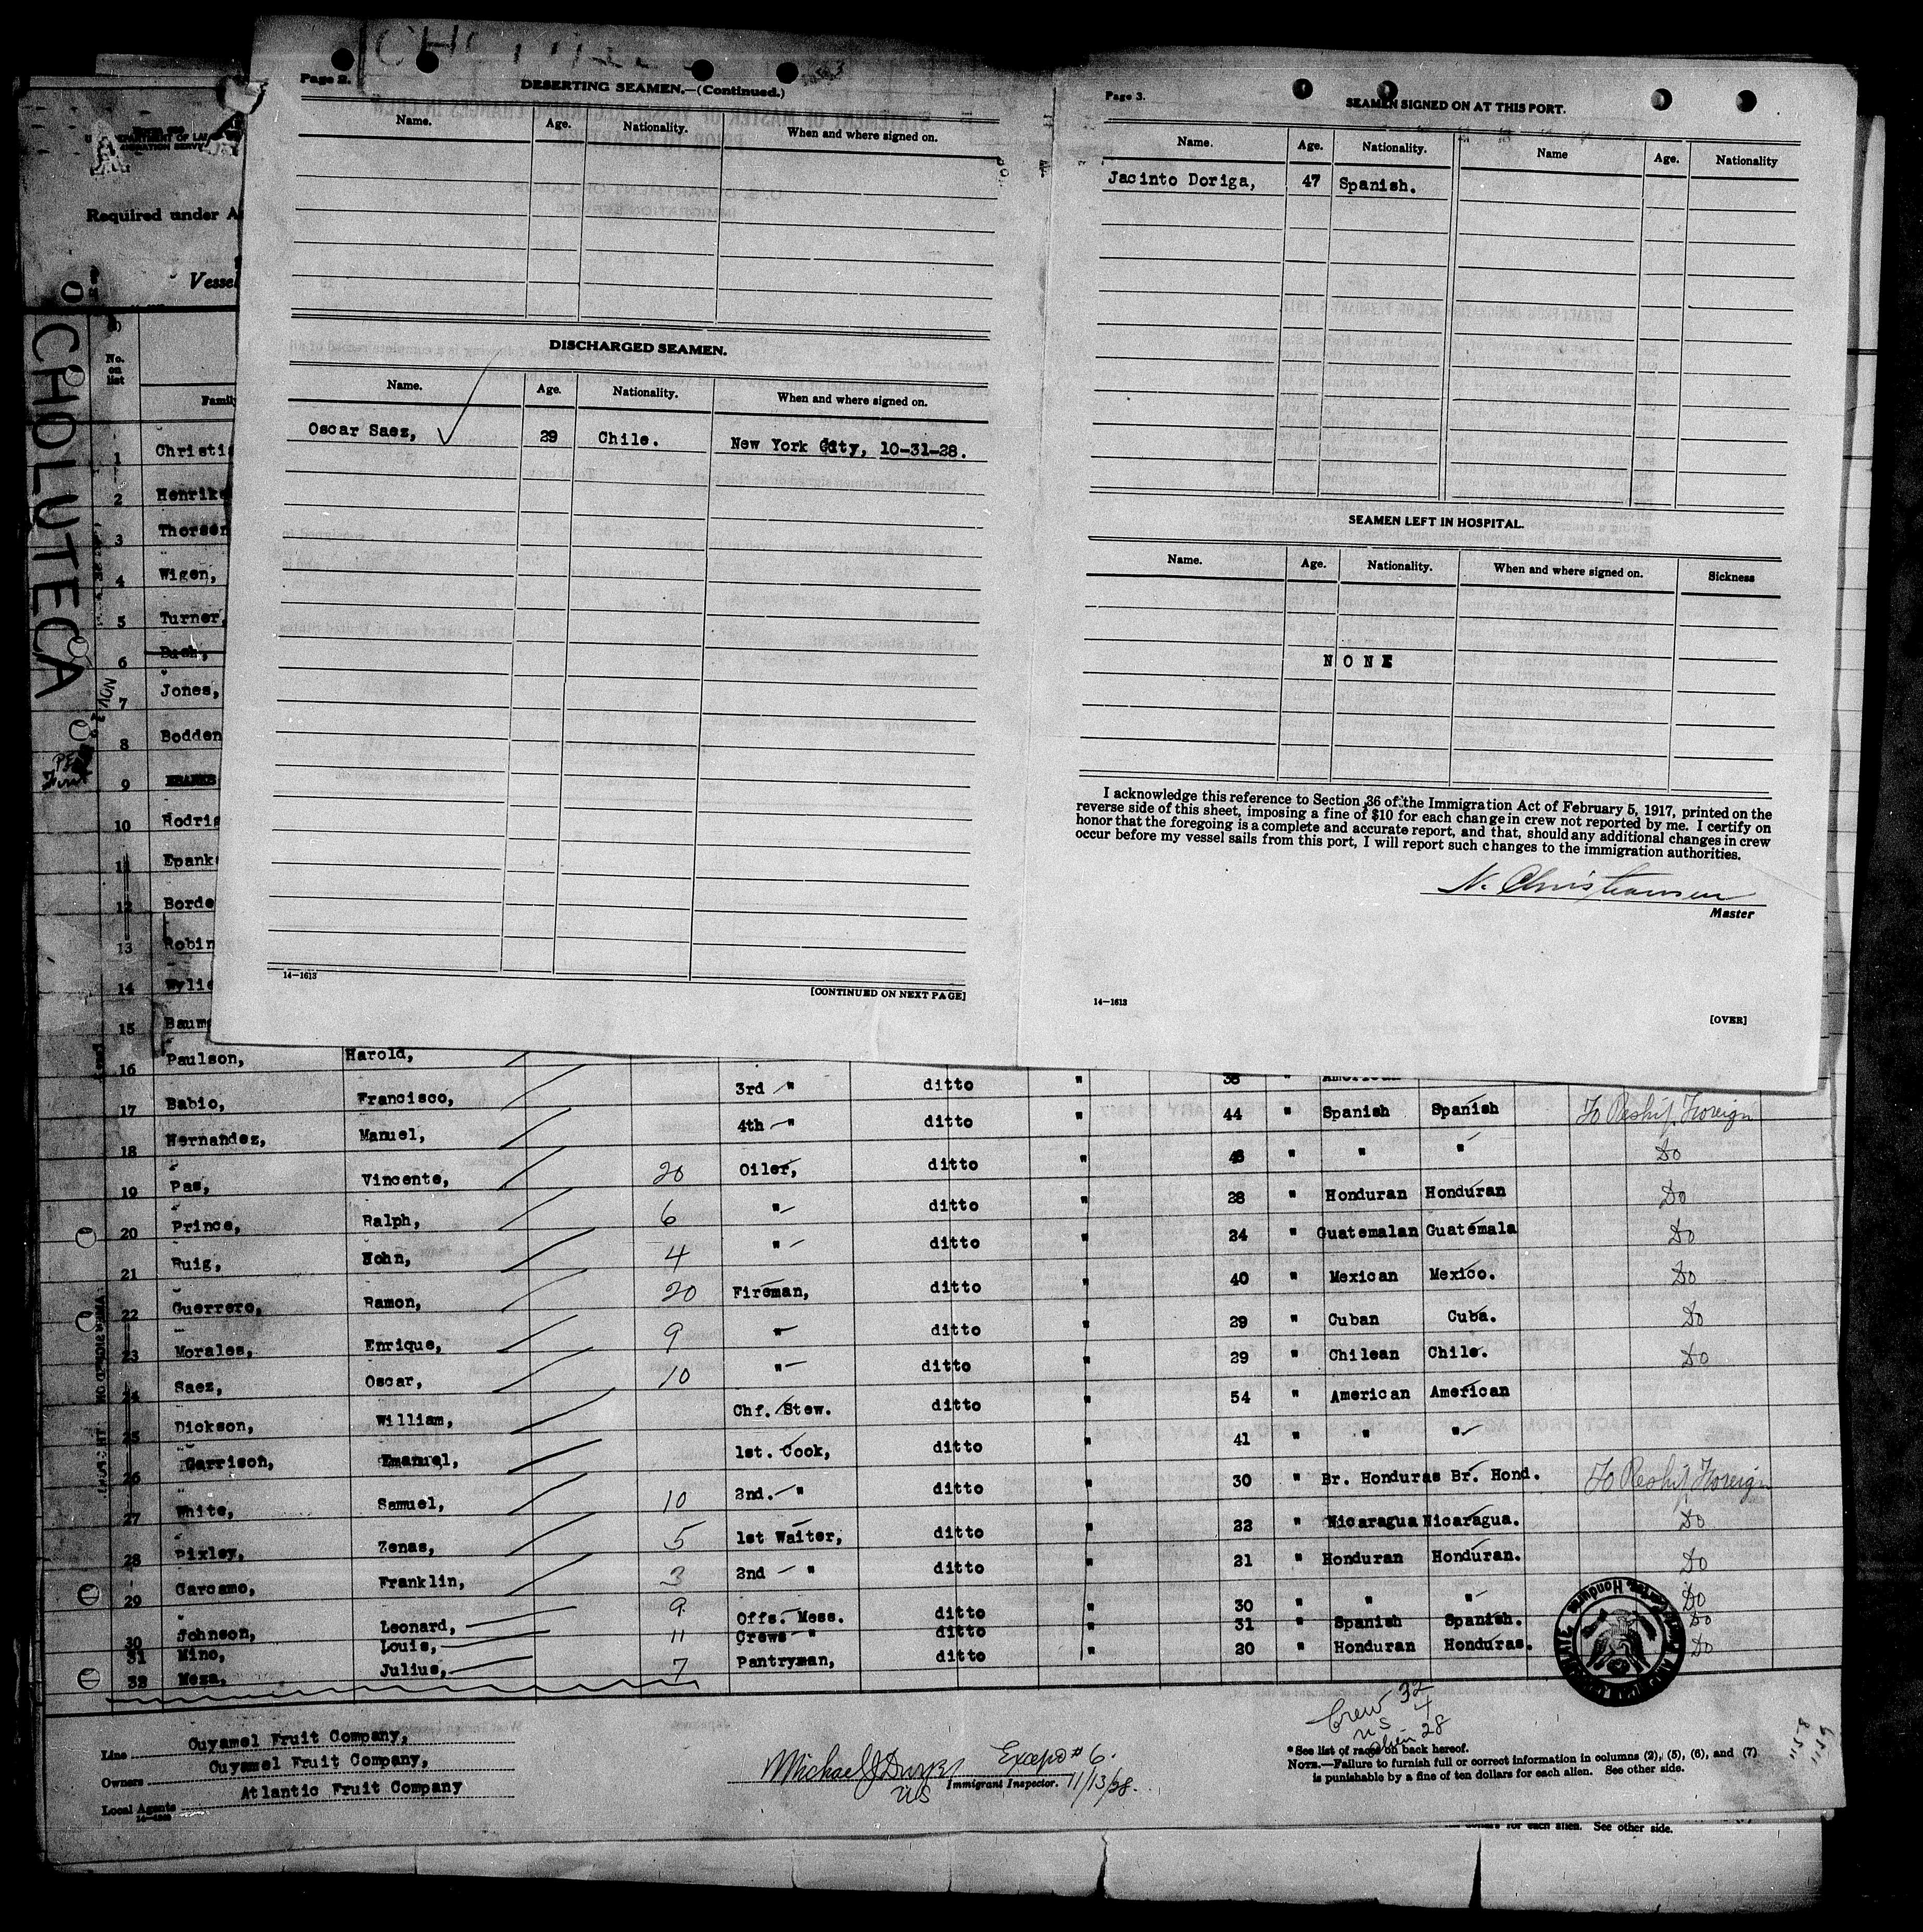 Page 2.
DESERTING SEAMEN.—(Continued.)
Name. Age. Nationality. When and where signed on.
DISCHARGED SEAMEN.
Name. Age. Nationality. When and where signed on.
Oscar Saez, 29 Chile. New York City, 10-31-28.
14—1613
[CONTINUED ON NEXT PAGE]
Page 3.
SEAMEN SIGNED ON AT THIS PORT.
Name. Age. Nationality. Name Age. Nationality
Jacinto Doriga, 47 Spanish.
SEAMEN LEFT IN HOSPITAL.
Name. Age. Nationality. When and where signed on. Sickness
NONE
I acknowledge this reference to Section 36 of the Immigration Act of February 5, 1917, printed on the
reverse side of this sheet, imposing a fine of $10 for each change in crew not reported by me. I certify on
honor that the foregoing is a complete and accurate report, and that, should any additional changes in crew
occur before my vessel sails from this port, I will report such changes to the immigration authorities.
N. Christiansen
Master
14—1613
[OVER]
Required under A
Vessel
CHOLUTECA
No. on list
Famil
1 Christi
2 Henrik
3 Thorsen
4 Wigen,
5 Turner,
6
7 Jones,
8 Bodden
9
10 Rodri
11 Epank
12 Borde
13 Robin
14 Wylie
15 Baum
16 Paulson, Harold, 3rd " ditto " 38 "
17 Babio, Francisco, 4th " ditto " 44 " Spanish Spanish To Reship Foreign
18 Hernandez, Manuel, Oiler, ditto " " " " Do
19 Pas, Vincente, 20 " ditto " 28 " Honduran Honduran Do
20 Prince, Ralph, 6 " ditto " 24 " Guatemalan Guatemala Do
21 Ruig, 4 Fireman, ditto " 40 " Mexican Mexico. Do
22 Guerrero, Ramon, 20 " ditto " 29 " Cuban Cuba. Do
23 Morales, Enrique, 9 " ditto " 29 " Chilean Chile. Do
24 Saez, Oscar, 10 Chf. Stew. ditto " 54 " American American
25 Dickson, William, 1st. Cook, ditto " 41 " " "
26 Garrison, Emanuel, 2nd. " ditto " 30 " Br. Honduras Br. Hond. To Reship Foreign
27 White, Samuel, 10 1st Waiter, ditto " 22 " Nicaragua Nicaragua. Do
28 Pixley, Zenas, 5 2nd " ditto " 21 " Honduran Honduran. Do
29 Carcamo, Franklin, 3
30 Johnson, Leonard, 9 Offs. Mess. ditto " 30 " " " Do
31 Mino, Louis, 11 Crews " ditto " 31 " Spanish Spanish. Do
32 Meza, Julius, 7 Pantryman, ditto " 20 " Honduran Honduras. Do
Crew 32
US 4
Alien 28
Line Cuyamel Fruit Company,
Owners Cuyamel Fruit Company,
Local Agents Atlantic Fruit Company
Except #6.
Immigrant Inspector. 11/13/28.
US
* See list of races on back hereof.
NOTE.—Failure to furnish full or correct information in columns (2), (5), (6), and (7)
is punishable by a fine of ten dollars for each alien. See other side.
for each alien. See other side.